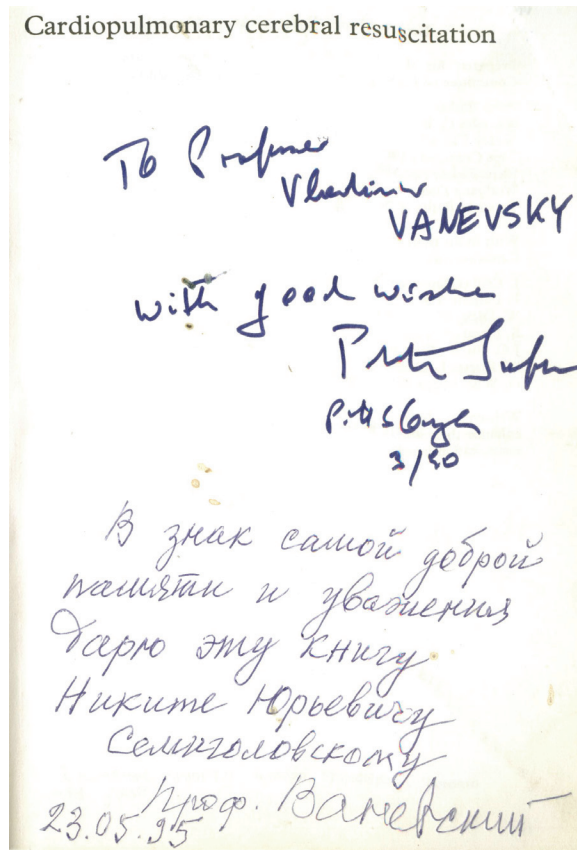 Cardiopulmonary cerebral resuscitation
To Professor
Vladimir
VANEVSKY
with good wishes
Peter Safar
Pittsburgh
3/90
В знак самой доброй
памяти и уважения
дарю эту книгу
Никите Юрьевичу
Семиголовскому
Проф. Ваневский
23.05.95